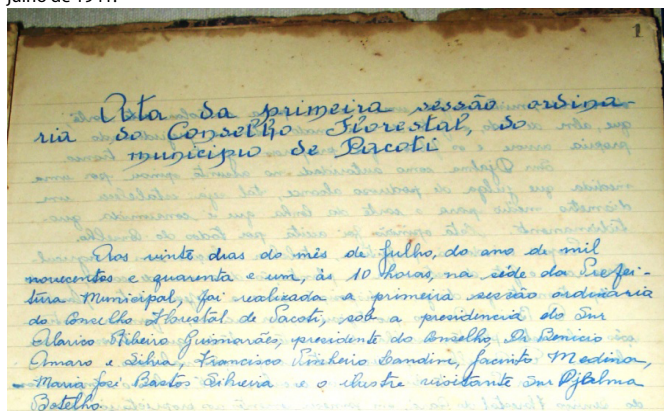 julho de 1941.
1
Ata da primeira sessão ordina-
ria do Conselho Florestal, do
municipio de Pacoti
Aos vinte dias do mês de Julho, do ano de mil
novecentos e quarenta e um, às 10 horas, na séde da Prefei-
tura Municipal, foi realizada a primeira sessão ordinária
do Conselho Florestal de Pacoti, sob a presidencia do Snr
Alarico Ribeiro Guimarães, presidente do Conselho, Dr Benicio
Amaro e Silva, Francisco Pinheiro Landim, Jacinto Medina,
Maria José Bastos Silveira e o ilustre visitante Snr Djalma
Botelho